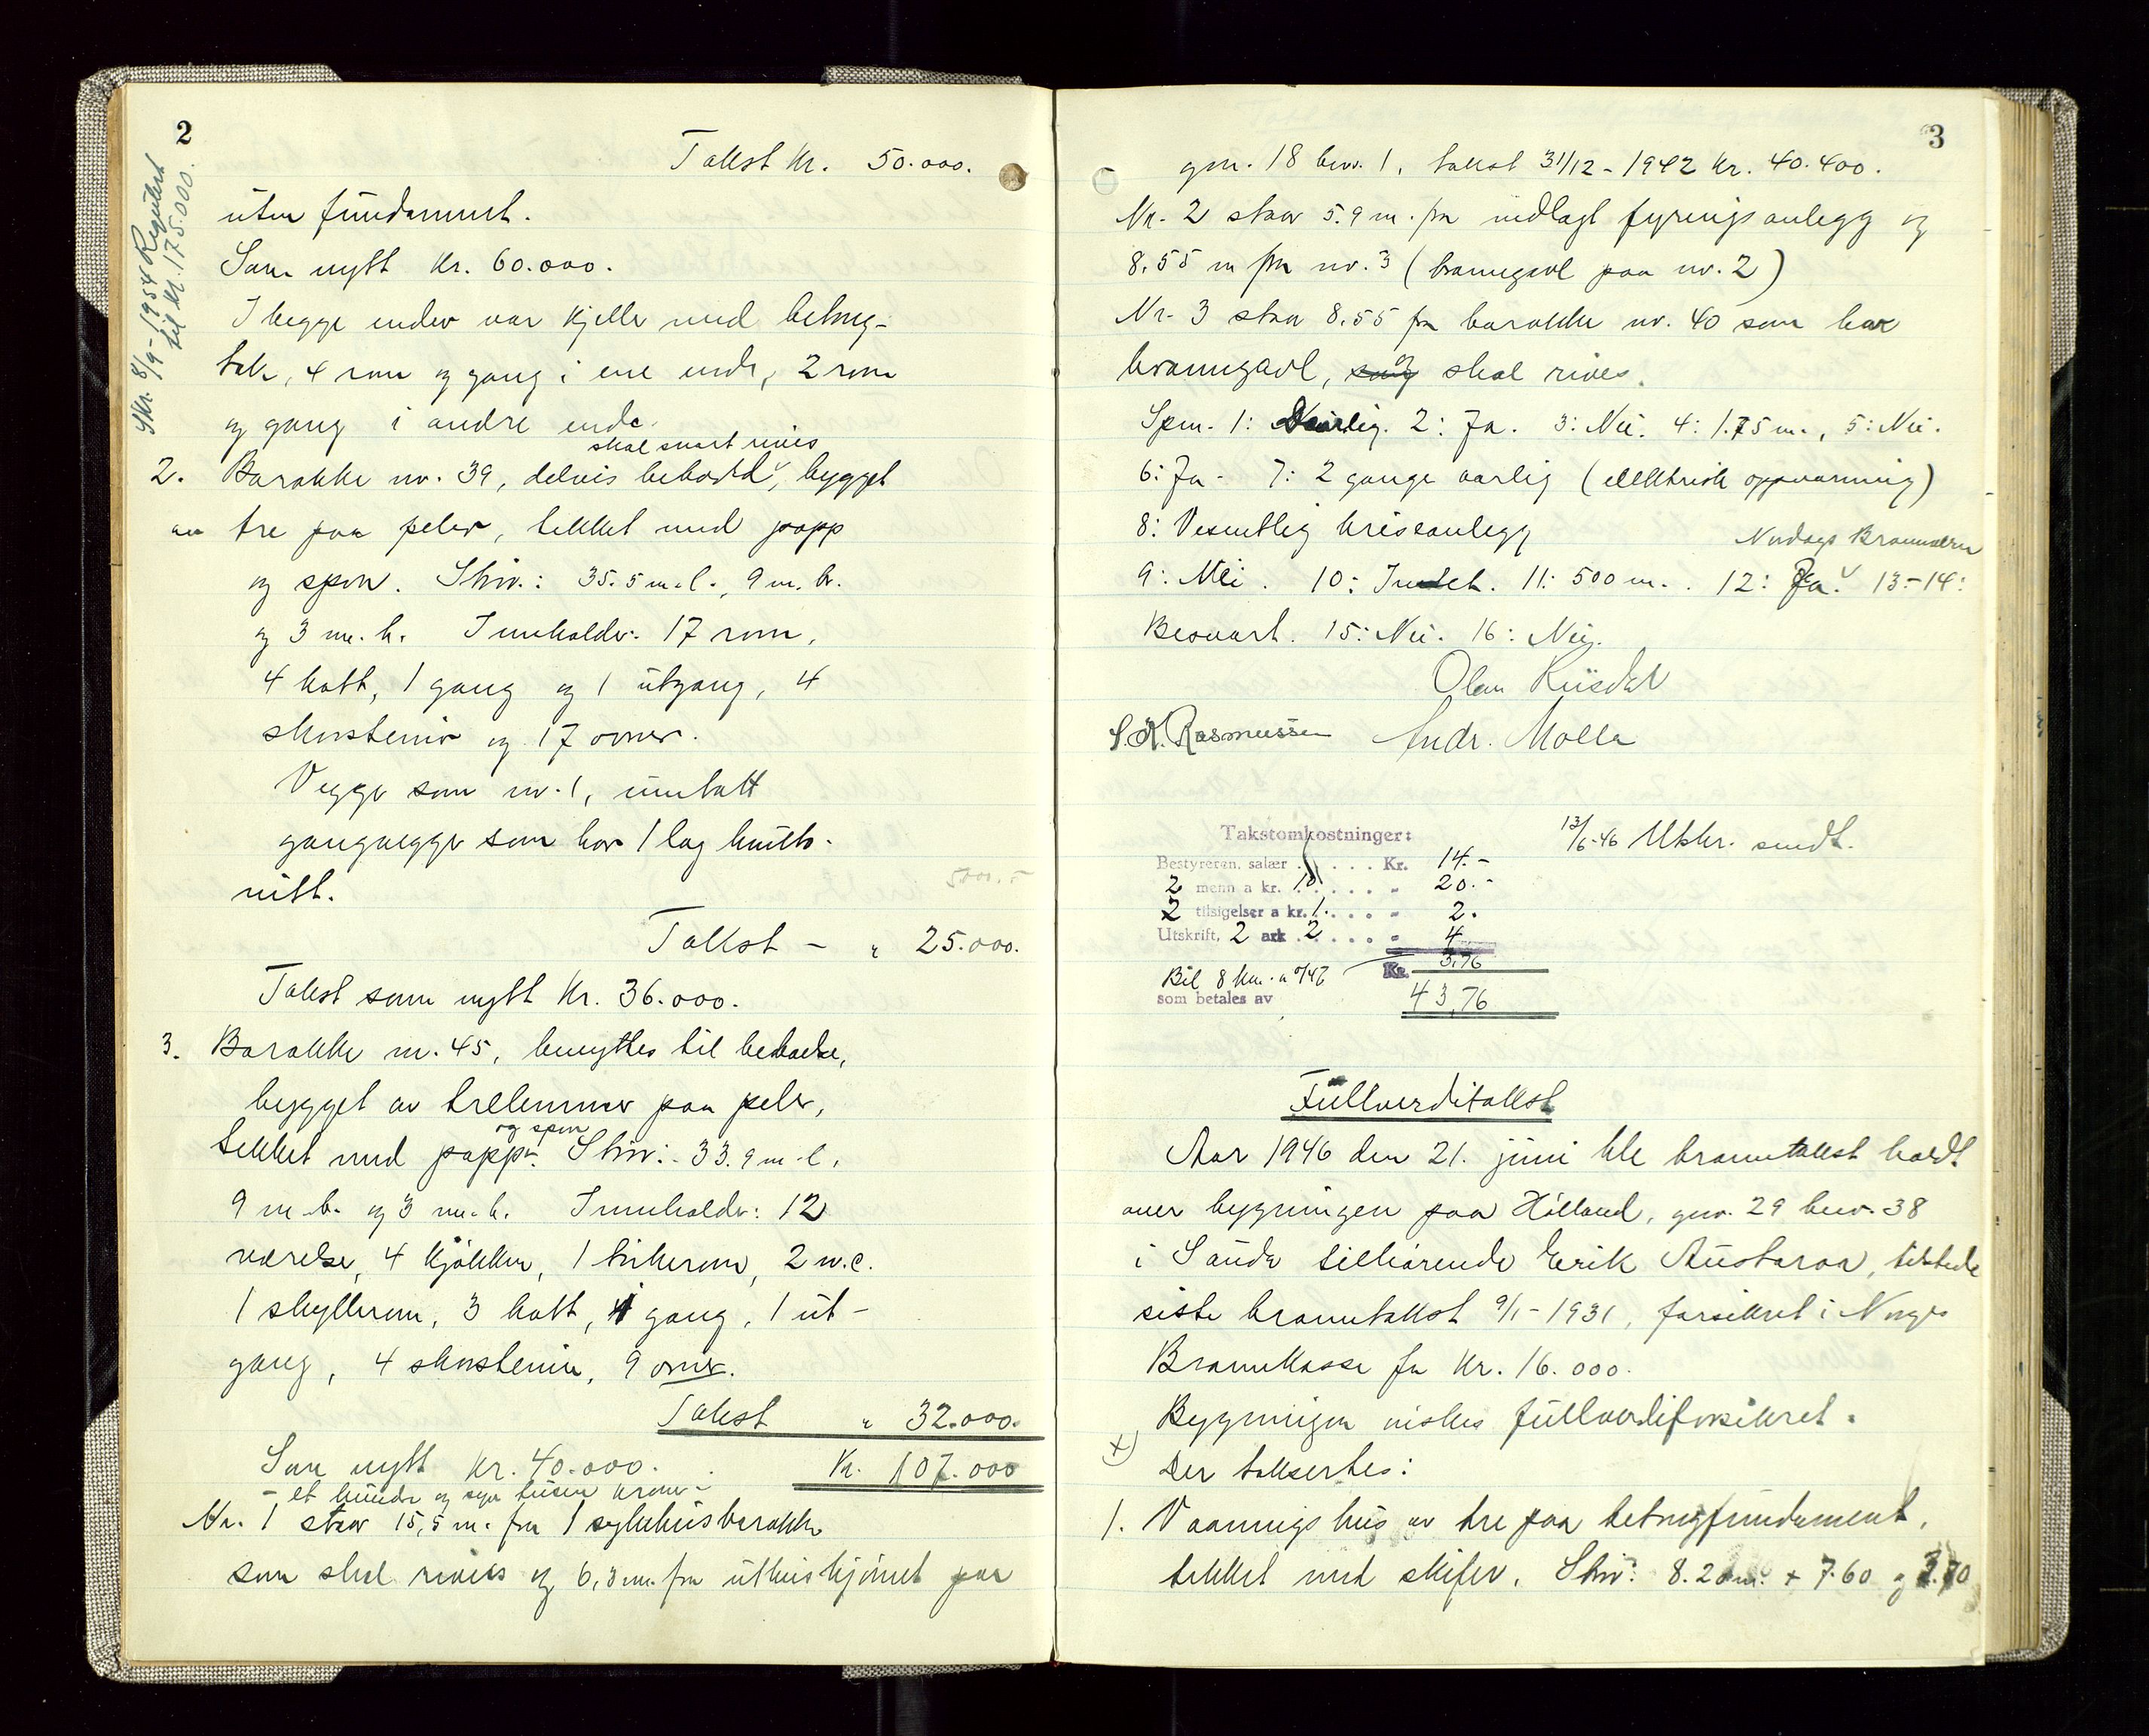 2
Skr. 8/9-1954 Regulert
til kr. 175.000.
Takst kr. 50.000.
uten fundament.
Som nytt kr. 60.000.
I begge ender var kjeller med betong-
tak, 4 rom og gang i ene ende, 2 rom
og gang i andre ende.
skal snart rives
2. Barakke nr. 39, delvis bebodd, bygget
av tre paa peler, tekket med papp
og spon. Stør.: 35.5 m. l., 9 m. br.
og 3 m. h. Inneholder: 17 rom,
4 kott, 1 gang og 1 utgang, 4
skorstener og 17 ovner.
Vegger som nr. 1, unntatt
gangvegger som har 1 lag huntо-
nitt.
Takst - " 25.000.
Takst som nytt kr. 36.000.
3. Barakke nr. 45, benyttes til beboelse,
bygget av trelemmer paa peler,
og spon
tekket med papp. Stør.: 33.9 m. l.
9 m. b. og 3 m. h. Inneholder: 12
værelse, 4 kjøkken, 1 tørkerom, 2 w.c.
1 skyllerom, 3 kott, 1 gang, 1 ut-
gang, 4 skorstener, 9 ovner.
Takst " 32.000.
Som nytt kr. 40.000. Kr. 107.000
- et hundre og syv tusen kroner -
Nr. 1 staar 15,5 m. fra 1 sykehusbarakke
som skal rives og 6,3 m. fra uthushjørnet paa
3
gnr. 18 bnr. 1, takst 31/12-1942 kr. 40.400.
Nr. 2 staar 5.9 m. fra nedlagt fyringsanlegg og
8.55 m fra nr. 3 (branngavl paa nr. 2)
Nr. 3 staar 8.55 fra barakke nr. 40 som har
branngavl, og skal rives.
Spm. 1: 2: Ja. 3: Nei. 4: 1.75 m., 5: Nei.
6: Ja - 7: 2 gange aarlig (elektrisk oppvarming)
8: Vesentlig krisseanlegg
Nordags Brannvern
9: Nei. 10: Intet. 11: 500 m. . 12: Ja. 13-14:
Besvart. 15: Nei. 16: Nei.
Olav Riisdal
S. K. Rasmussen Andr. Molla
Takstomkostninger:
13/6-46 Utskr. sendt.
Bestyreren, salær . . . . . Kr. 14.-
2 menn a kr. 10 . . . . . " 20.-
2 tilsigelser a kr. 1. . . . . " 2.
Utskrift, 2 ark 2 . . . . . " 4
Bil 8 km. a 0/47 Kr. 3.76
som betales av 43,76
Fullverditakst
Aar 1946 den 21. juni ble branntakst holdt
over bygningen paa Hålland, gnr. 29 bnr. 38
i Sauda tilhørende Erik Austaraa,
siste branntakst 9/1-1931, forsikret i Norges
Brannkasse for kr. 16.000.
Bygningen ønskes fullverdiforsikret.
+) Der takseres:
1. Vaaningshus av tre paa betongfundament,
tekket med skifer. Stør.: 8.20 m. + 7.60 og 3.70